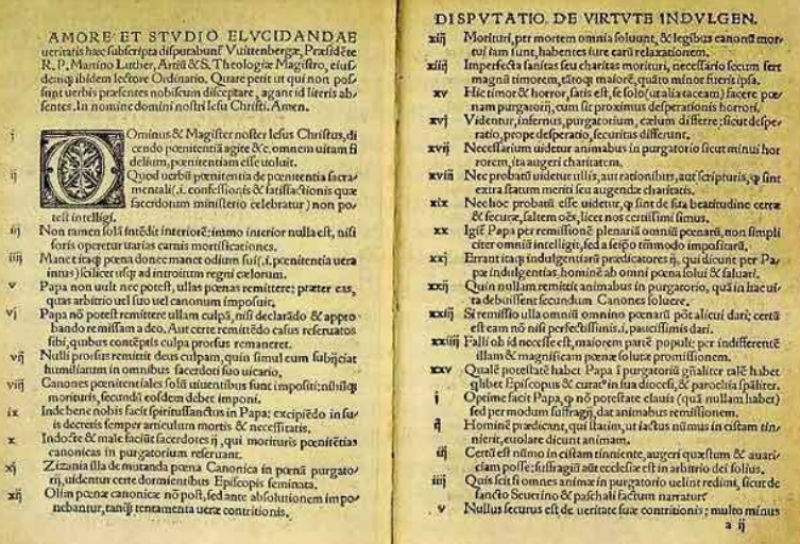 AMORE ET STVDIO ELVCIDANDAE
ueritatis haec subscripta disputabunt̃ Vuittenbergæ, Præsidẽte
R. P. Martino Luther, Artiũ & S. Theologiæ Magistro, eius-
demq; ibidem lectore Ordinario. Quare petit ut qui non pos-
sunt uerbis præsentes nobiscum disceptare, agant id literis ab-
sentes. In nomine domini nostri Iesu Christi. Amen.
i Ominus & Magister noster Iesus Christus, di
cendo pœnitentiã agite &c. omnem uitam fi
delium, pœnitentiam esse uoluit.
ij Quod uerbũ pœnitentia de pœnitentia sacra-
mentali(.i. confessionis & satisfactionis quæ
sacerdotum ministerio celebratur) non po-
test intelligi.
iij Non tamen solã intẽdit interiorẽ: immo interior nulla est, nisi
foris operetur uarias carnis mortificationes.
iiij Manet itaq; pœna donec manet odium sui(.i. pœnitentia uera
intus) scilicet usq; ad introitum regni cælorum.
v Papa non uult nec potest, ullas pœnas remittere: præter eas,
quas arbitrio uel suo uel canonum imposuit.
vj Papa nõ potest remittere ullam culpã, nisi declarãdo & appro
bando remissam a deo. Aut certe remittẽdo casus reseruatos
sibi, quibus contẽptis culpa prorsus remaneret.
vij Nulli prorsus remittit deus culpam, quin simul eum subijciat
humiliatum in omnibus sacerdoti suo uicario.
viij Canones pœnitentiales solũ uiuentibus sunt impositi: nihilq;
morituris, secundũ eosdem debet imponi.
ix Inde bene nobis facit spiritussanctus in Papa: excipiẽdo in su-
is decretis semper articulum mortis & necessitatis.
x Indocte & male faciũt sacerdotes ij, qui morituris pœnitẽtias
canonicas in purgatorium reseruant.
xj Zizania illa de mutanda pœna Canonica in pœnã purgato-
rij, uidentur certe dormientibus Episcopis seminata.
xij Olim pœnæ canonicæ nõ post, sed ante absolutionem impo
nebantur, tanq̃ tentamenta ueræ contritionis.
DISPVTATIO. DE VIRTVTE INDVLGEN.
xiij Morituri, per mortem omnia soluunt, & legibus canonũ mor-
tui iam sunt, habentes iure earũ relaxationem.
xiiij Imperfecta sanitas seu charitas morituri, necessario secum fert
magnũ timorem, tãtoq; maiorẽ, quãto minor fuerit ipsa.
xv Hic timor & horror, satis est, se solo (ut alia taceam) facere pœ-
nam purgatorij, cum sit proximus desperationis horrori.
xvj Videntur, infernus, purgatorium, cælum differre: sicut despe-
ratio, prope desperatio, securitas differunt.
xvij Necessarium uidetur animabus in purgatorio sicut minui hor
rorem, ita augeri charitatem.
xviij Nec probatũ uidetur ullis, aut rationibus, aut scripturis, q̃ sint
extra statum meriti seu augendæ charitatis.
xix Nec hoc probatũ esse uidetur, q̃ sint de sua beatitudine certæ
& securæ, saltem oẽs, licet nos certissimi simus.
xx Igit̃ Papa per remissionẽ plenariã omniũ pœnarũ, non simpli
citer omniũ intelligit, sed a seipso tm̃modo impositarũ.
xxj Errant itaq; indulgentiarũ prædicatores ij, qui dicunt per Pa-
pæ indulgentias, hominẽ ab omni pœna solui & saluari.
xxij Quin nullam remittit animabus in purgatorio, quã in hac ui-
ta debuissent secundum Canones soluere.
xxiij Si remissio ulla omniũ omnino pœnarũ põt alicui dari; certũ
est eam nõ nisi perfectissimis.i. paucissimis dari.
xxiiij Falli ob id necesse est, maiorem partẽ populi: per indifferentẽ
illam & magnificam pœnæ solutæ promissionem.
xxv Qualẽ potestatẽ habet Papa ĩ purgatoriũ gñaliter talẽ habet
q̃libet Episcopus & curat9 in sua diocesi, & parochia sp̃aliter.
i Optime facit Papa, q̃ nõ potestate clauis (quã nullam habet)
sed per modum suffragij, dat animabus remissionem.
ij Hominẽ prædicant, qui statim, ut iactus nũmus in cistam tin-
nierit, euolare dicunt animam.
iij Certũ est nũmo in cistam tinniente, augeri quæstum & auari-
ciam posse: suffragiũ aũt ecclesiæ est in arbitrio dei solius.
iiij Quis scit si omnes animæ in purgatorio uelint redimi, sicut de
sancto Seuerino & paschali factum narratur̃
v Nullus securus est de ueritate suæ contritionis; multo minus
a ij